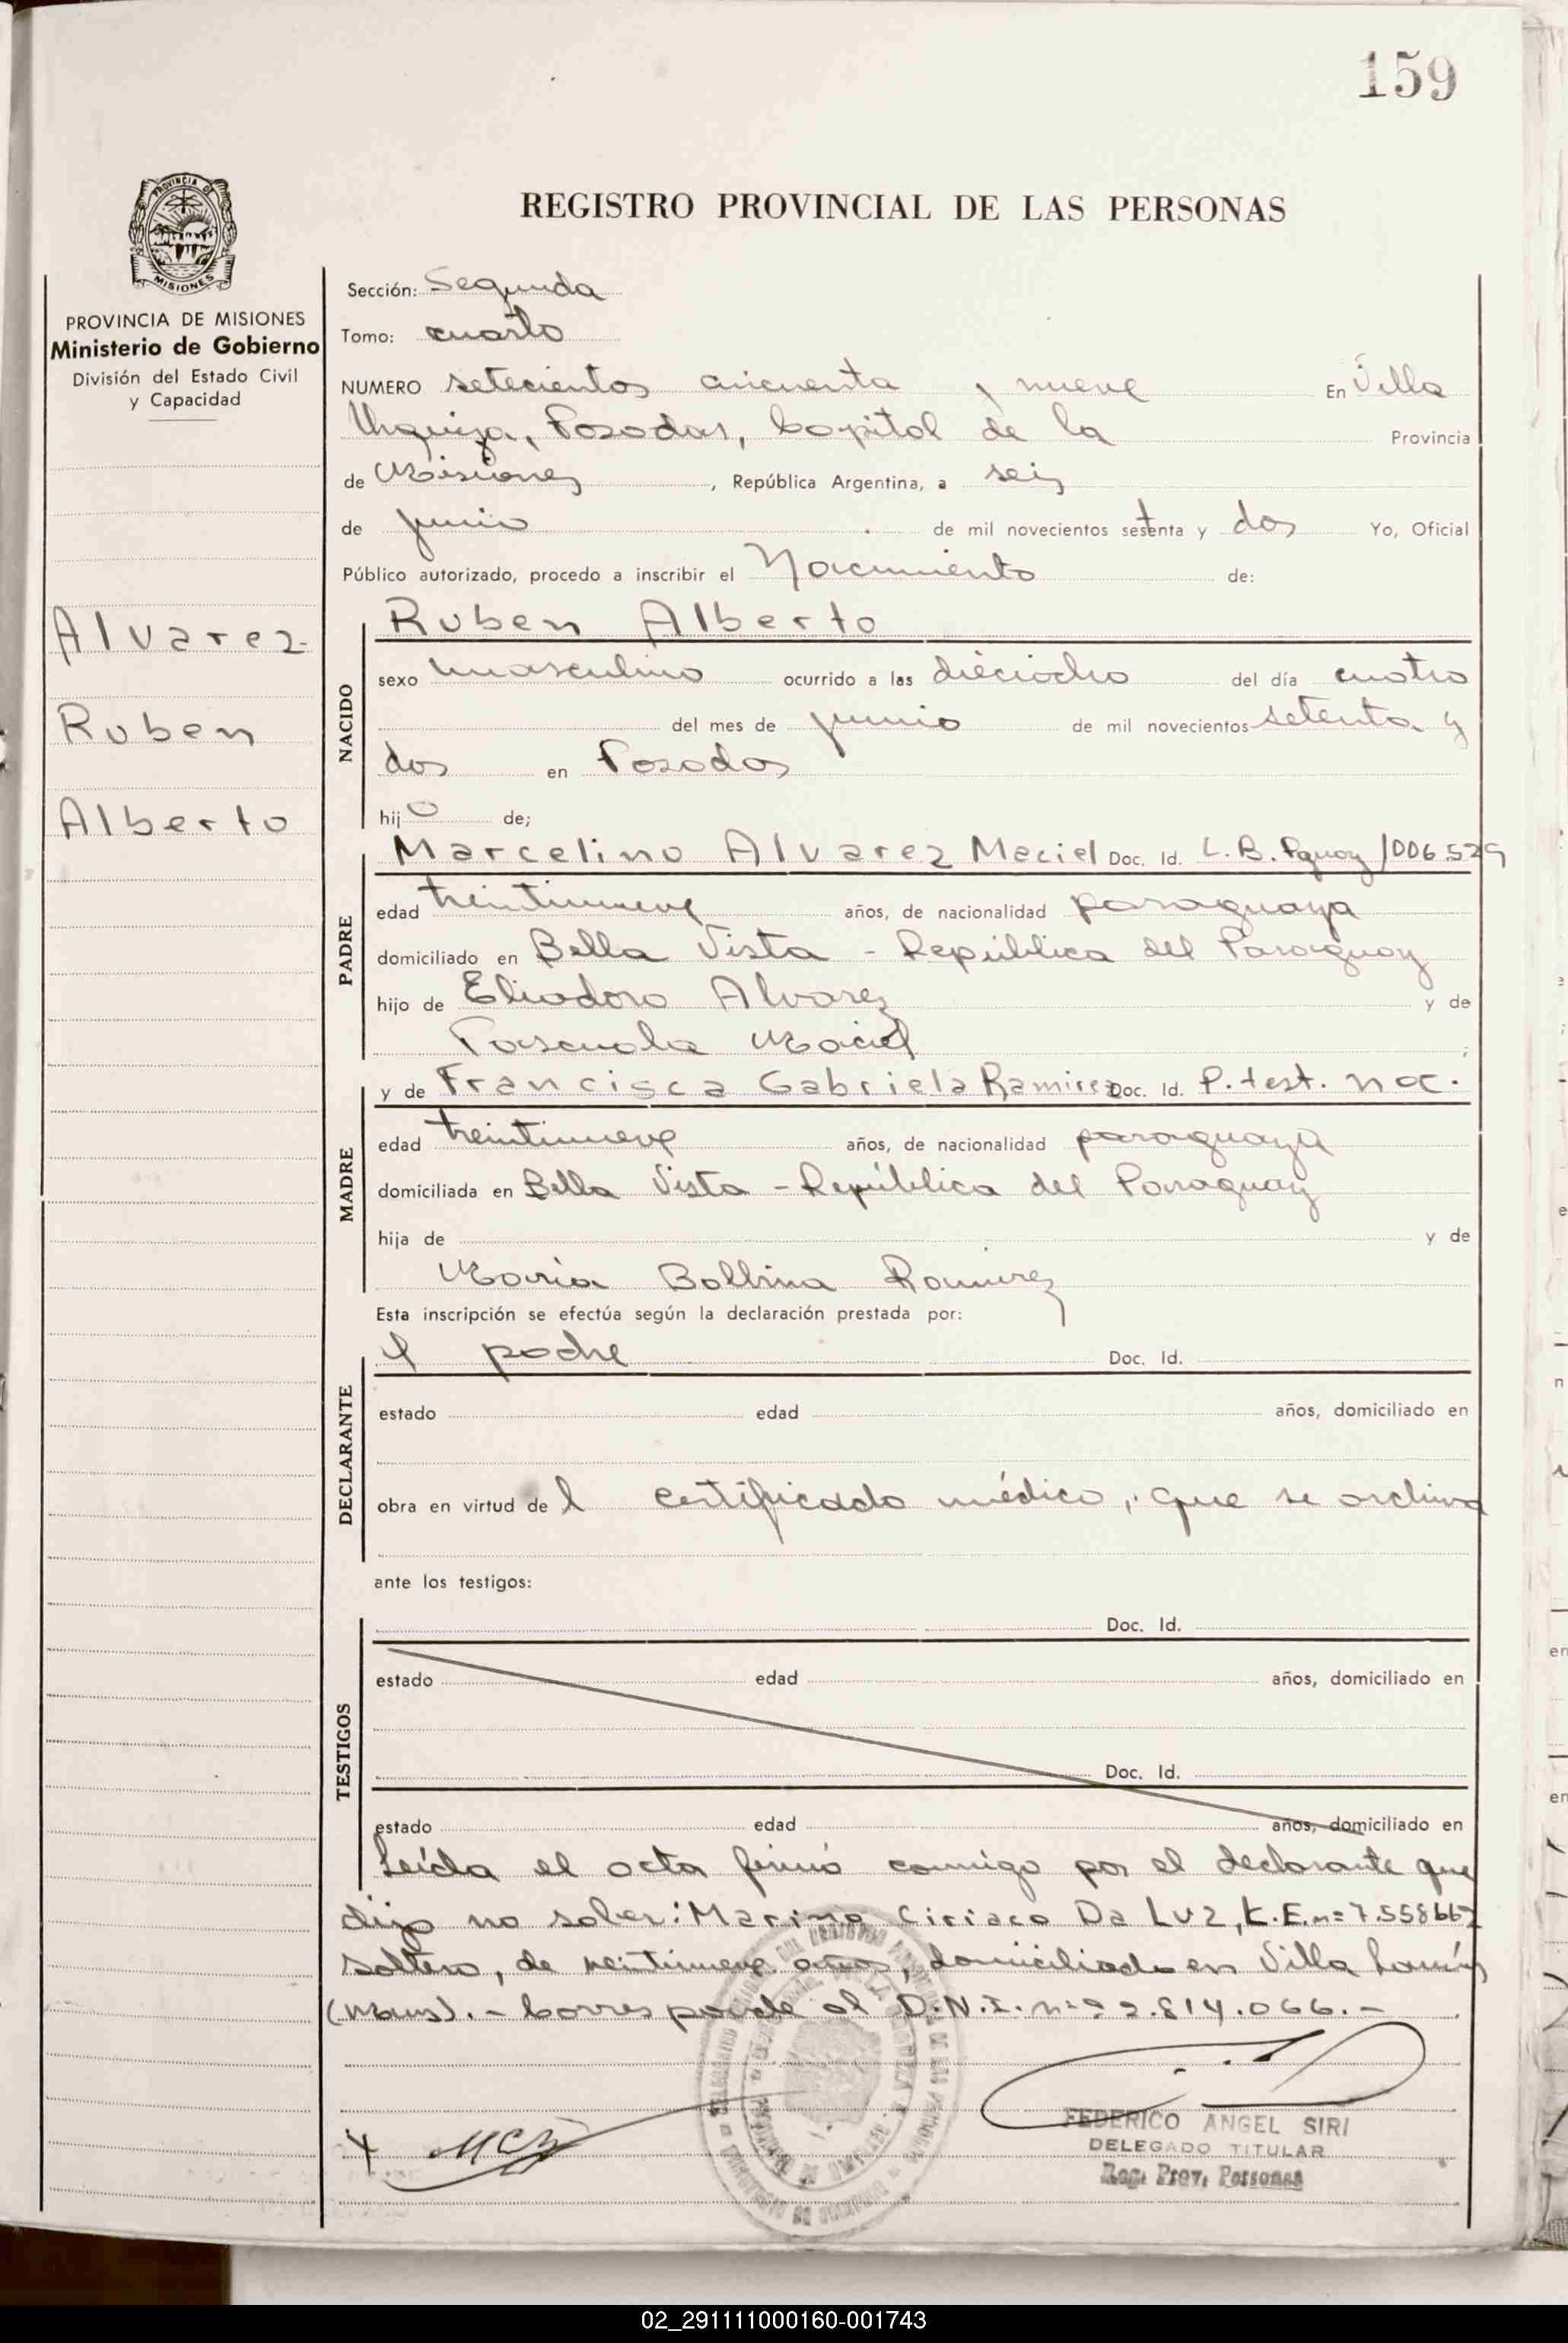 159
PROVINCIA DE
MISIONES
PROVINCIA DE MISIONES
Ministerio de Gobierno
División del Estado Civil
y Capacidad
Alvarez
Ruben
Alberto
REGISTRO PROVINCIAL DE LAS PERSONAS
Sección: Segunda
Tomo: cuarto
NUMERO setecientos cincuenta y nueve En Villa
Urquiza, Posadas, Capital de la Provincia
de Misiones, República Argentina, a seis
de junio de mil novecientos setenta y dos Yo, Oficial
Público autorizado, procedo a inscribir el Nacimiento de:
NACIDO
Ruben Alberto
sexo masculino ocurrido a las dieciocho del día cuatro
del mes de junio de mil novecientos setenta y
dos en Posadas
hijo de;
PADRE
Marcelino Alvarez Maciel Doc. Id. C.B. Pguay 1006.529
edad treintinueve años, de nacionalidad paraguaya
domiciliado en Bella Vista - República del Paraguay
hijo de Eliodoro Alvarez y de
Pascuala Maciel ;
MADRE
y de Francisca Gabriela Ramirez Doc. Id. P. test. noc.
edad treintinueve años, de nacionalidad paraguaya
domiciliada en Bella Vista - República del Paraguay
hija de y de
María Balbina Ramirez
Esta inscripción se efectúa según la declaración prestada por:
DECLARANTE
el padre Doc. Id.
estado edad años, domiciliado en
obra en virtud del certificado médico, que se archiva
ante los testigos:
TESTIGOS
Doc. Id.
estado edad años, domiciliado en
Doc. Id.
estado edad años, domiciliado en
Leída el acta firmó conmigo por el declarante que
dijo no saber: Marino Ciriaco Da Luz, L.E. nº 7.558667
soltero, de veintinueve años, domiciliado en Villa Lanús
(Mnes). - Corresponde al D.N.I. nº 22.814.066. -
FEDERICO ANGEL SIRI
DELEGADO TITULAR
Reg. Prov. Personas
02_291111000160-001743